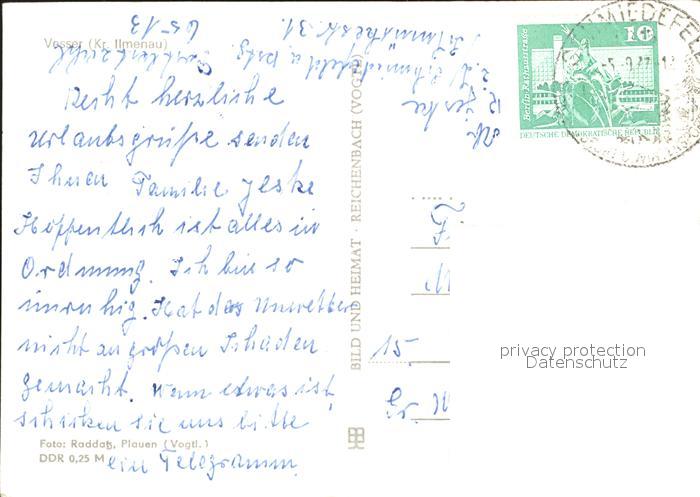 Vesser (Kr. Ilmenau)
Recht herzliche
Urlaubsgrüße senden
Ihnen Familie Jeske
Hoffentlich ist alles in
Ordnung. Ich bin so
unruhig. Hat das Unwetter
nicht an großen Schaden
gemacht. Wenn etwas ist
schicken sie uns bitte
ein Telegramm
Foto: Raddatz, Plauen (Vogtl.)
DDR 0,25 M
BILD UND HEIMAT · REICHENBACH (VOGTL)
6513
R. Jeske
z. Z. Schmiedefeld a. Rstg.
31.
Berlin-Rathausstraße
10
DEUTSCHE DEMOKRATISCHE REPUBLIK
SCHMIEDEFELD
F
M
15
Gr. W
privacy protection
Datenschutz